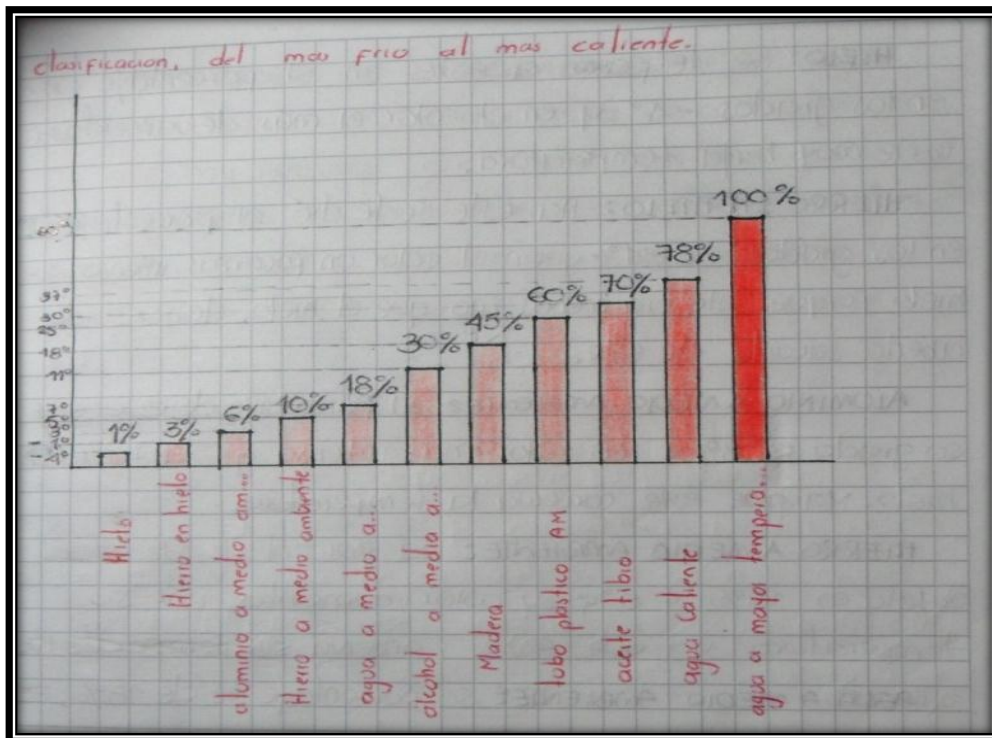 clasificacion, del mas frio al mas caliente.
100%
78%
70%
60%
45%
30%
18%
10%
6%
3%
1%
60°
37°
30°
25°
18°
11°
Hielo
Hierro en hielo
aluminio a medio am...
Hierro a medio ambiente
agua a medio a...
alcohol a media a...
Madera
tubo plastico AM
aceite tibio
agua Caliente
agua a mayor tempera...